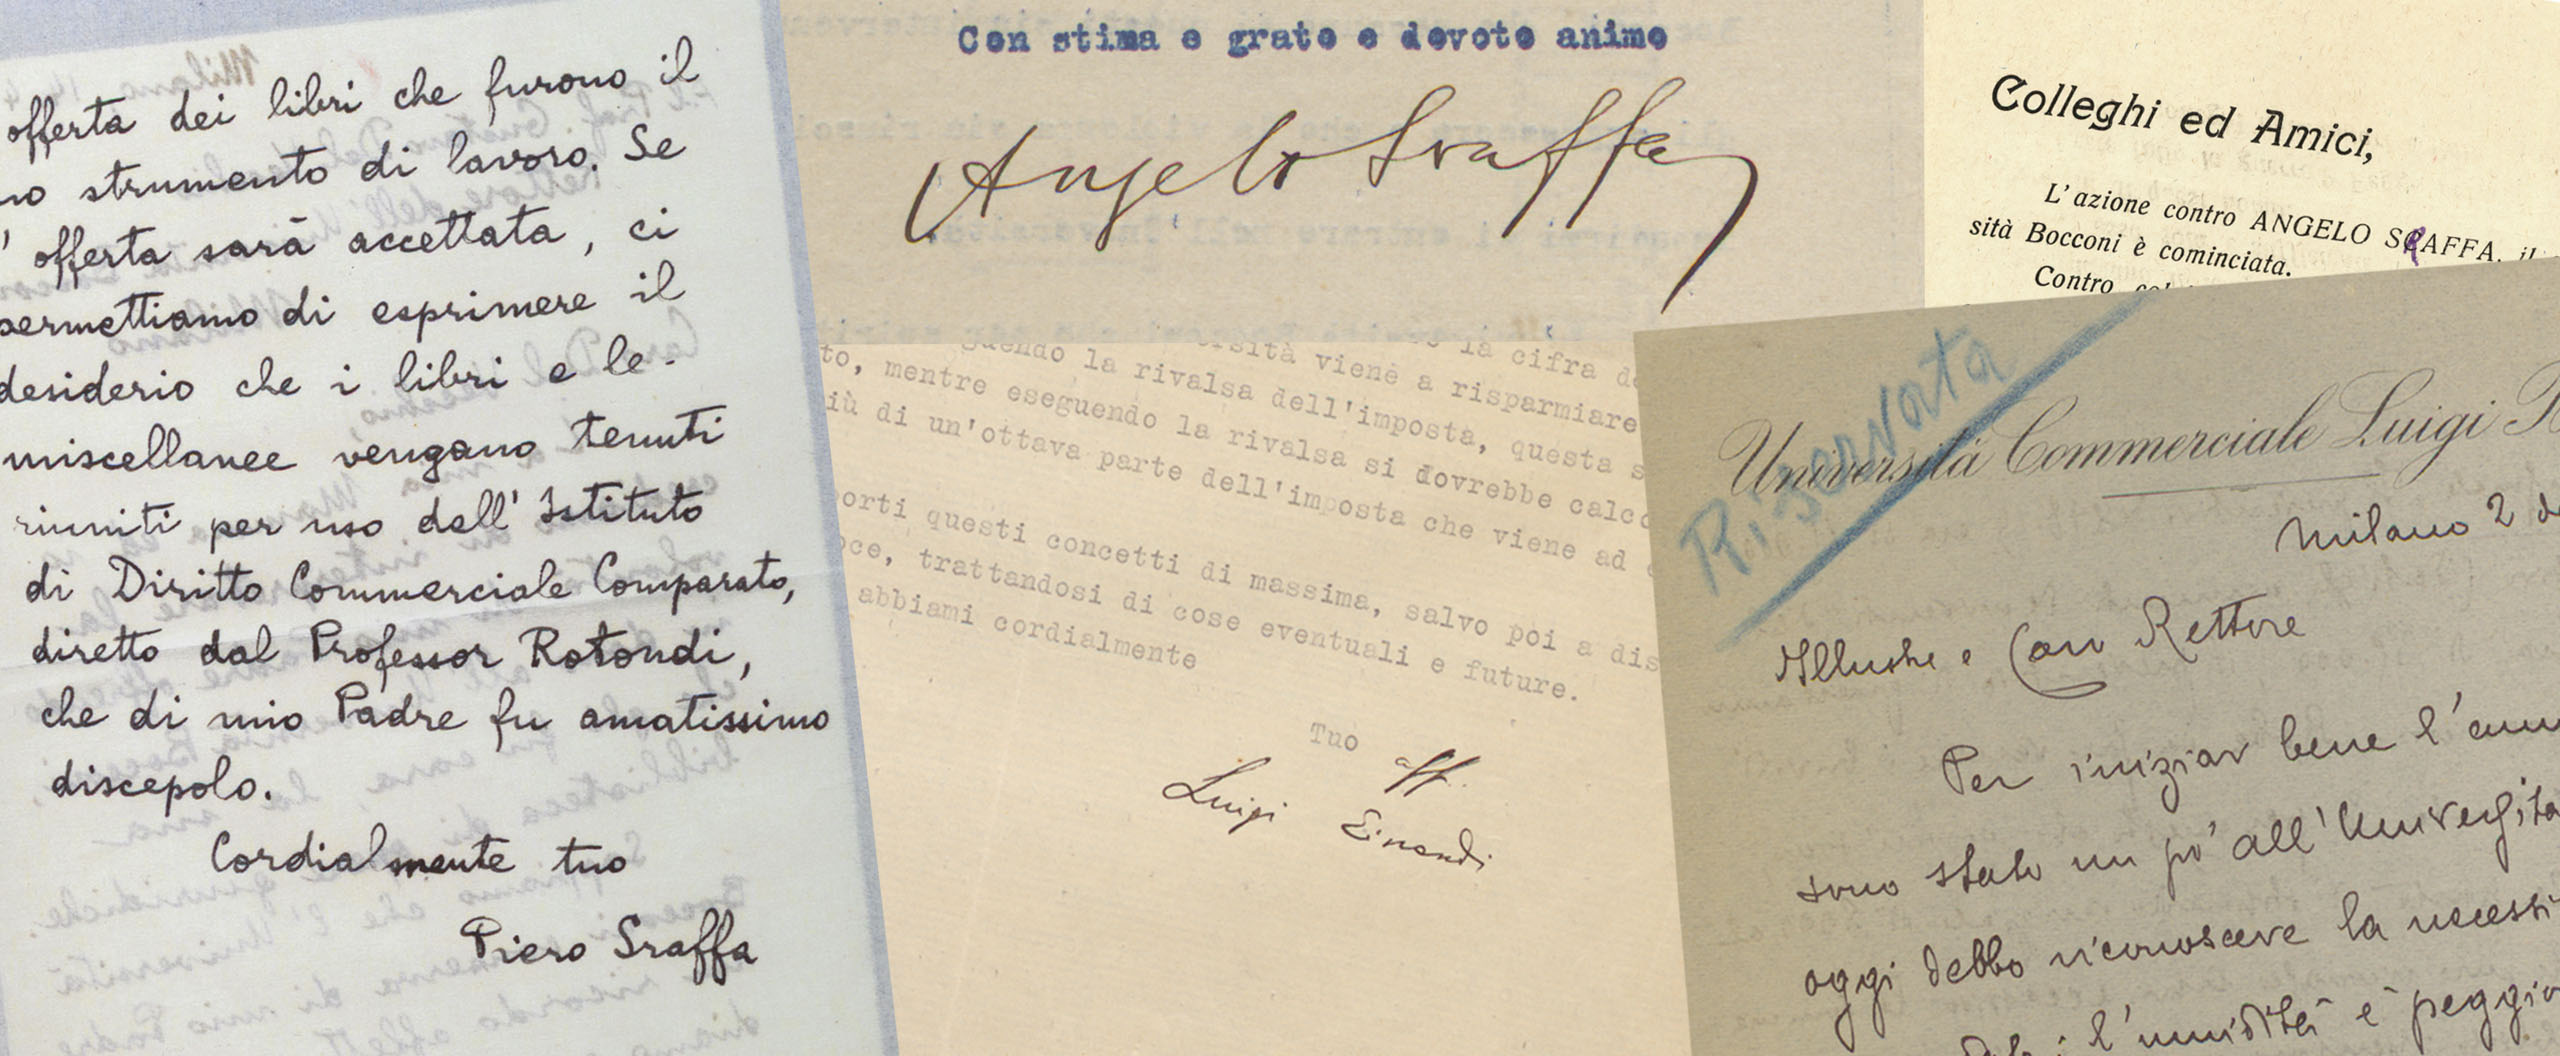 offerta dei libri che furono il
strumento di lavoro. Se
offerta sarà accettata, ci
permettiamo di esprimere il
desiderio che i libri e le
miscellanee vengano tenuti
riuniti per uso dell'Istituto
di Diritto Commerciale Comparato,
diretto dal Professor Rotondi,
che di mio Padre fu amatissimo
discepolo.
Cordialmente tuo
Piero Sraffa
Con stima e grato e devoto animo
Angelo Sraffa
guendo la rivalsa dell'imposta, questa s
to, mentre eseguendo la rivalsa si dovrebbe calco
iù di un'ottava parte dell'imposta che viene ad
orti questi concetti di massima, salvo poi a dis
oce, trattandosi di cose eventuali e future.
abbiami cordialmente
Tuo aff.
Luigi Einaudi
Colleghi ed Amici,
L'azione contro ANGELO SRAFFA, il
sità Bocconi è cominciata.
Contro
Riservata
Università Commerciale Luigi B
Milano 2
Illustre e Caro Rettore
Per iniziar bene l'ann
sono stato un po' all'Università
oggi debbo riconoscere la necessi
l'umidità è peggio